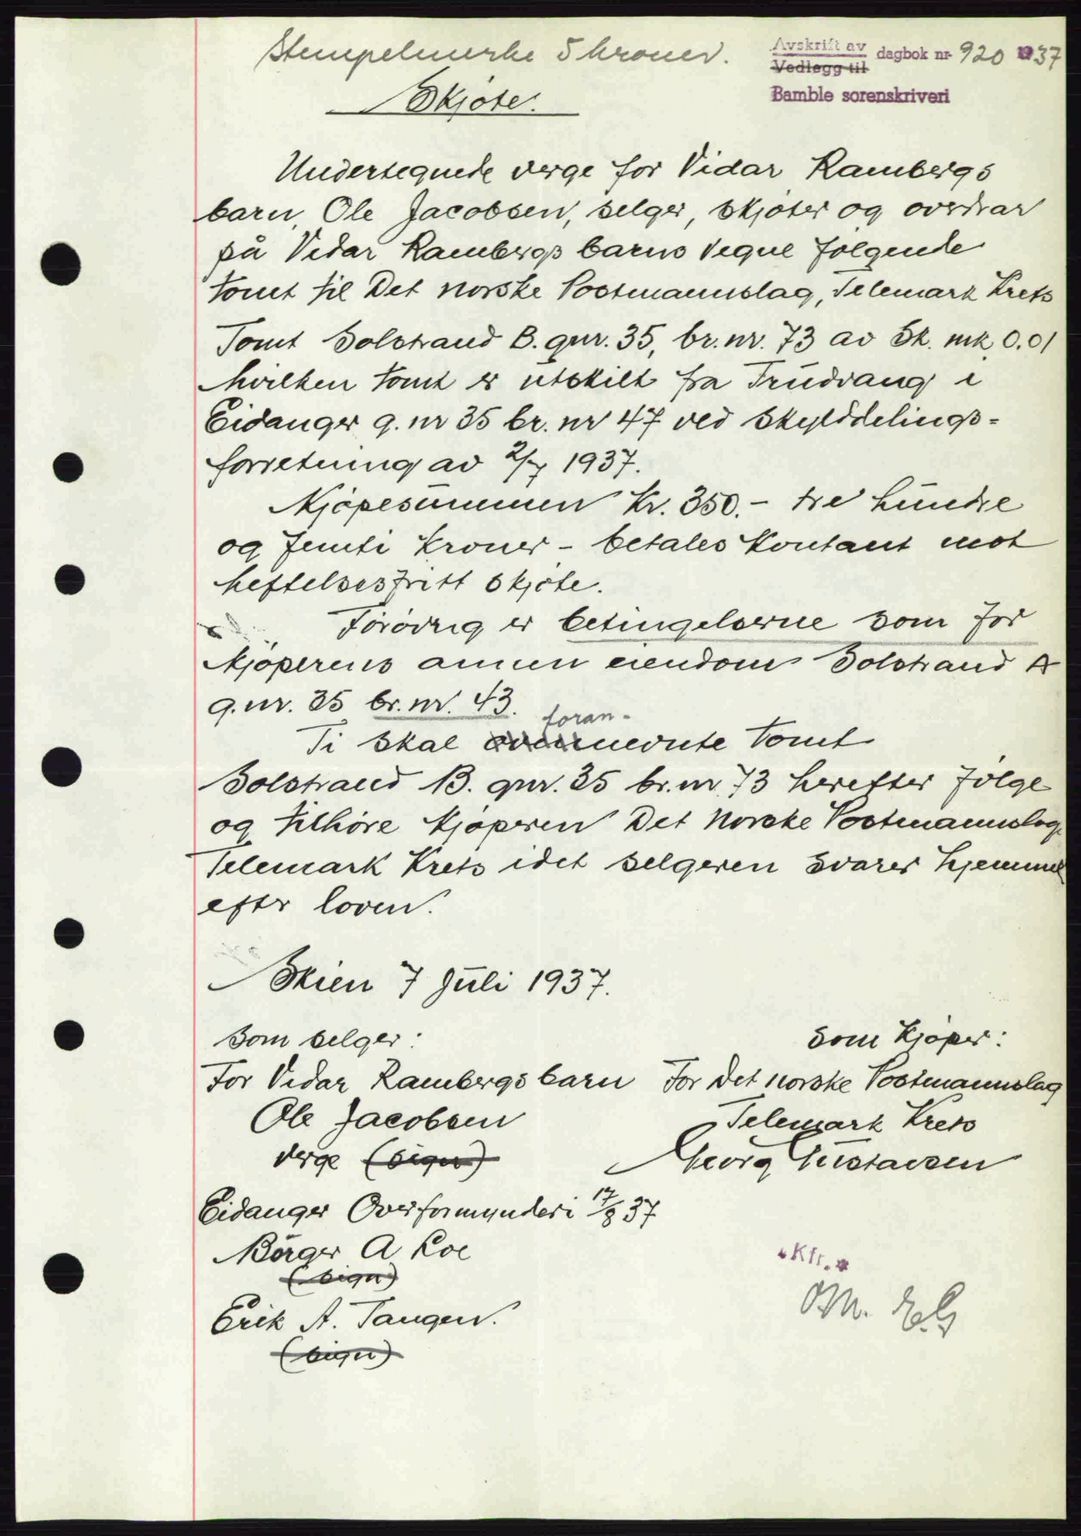 Stempelmerke 5 kroner.
Avskrift av
Vedlegg til
dagbok nr 920 1937
Bamble sorenskriveri
Skjöte.
Undertegnede verge for Vidar Rambergs
barn, Ole Jacobsen, selger, skjöter og overdrar
på Vidar Rambergs barns vegne fölgende
tomt til Det norske Postmannslag, Telemark Krets
Tomt Solstrand B. gnr. 35, br. nr. 73 av Sk. mk. 0.01
hvilken tomt er utskilt fra Trudvang i
Eidanger g. nr 35 br. nr 47 ved skylddelings-
forretning av 2/7 1937.
Kjöpesummen Kr. 350.- tre hundre
og femti kroner - betales kontant mot
heftelsesfritt skjöte.
Forövrig er betingelserne som for
kjöperens annen eiendom Solstrand A
g.nr. 35 br. nr. 43.
foran-
Ti skal nevnte tomt
Solstrand B. gnr. 35 br. nr 73 herefter fölge
og tilhöre kjöperen Det Norske Postmannslag
Telemark Krets idet selgeren svarer hjemmel
efter loven.
Skien 7 Juli 1937.
Som selger:
Som Kjöper:
For Vidar Rambergs barn
For Det norske Postmannslag
Ole Jacobsen
Telemark Krets
verge (sign)
Georg Gustavsen
Eidanger Overformynderi 17/8 37
Börger A. Roe
(sign)
Kfr.
Erik A. Tangen.
(sign)